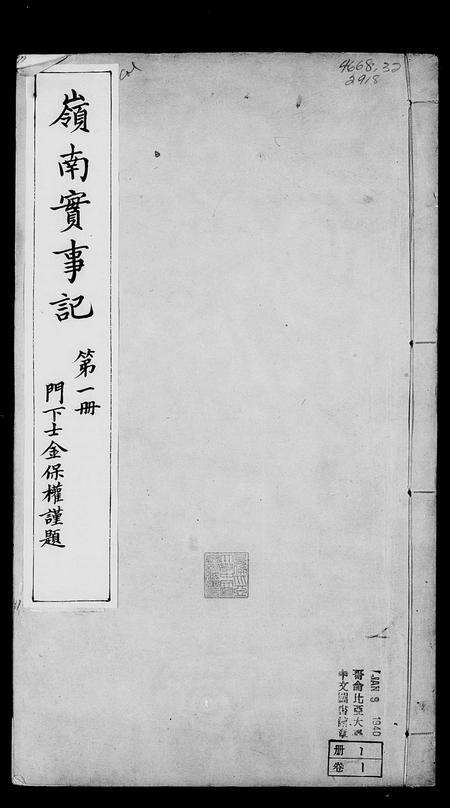 嶺南實事記
第一冊
門下士金保權謹題
col
9668.32
2918
JAN 9 1940
哥倫比亞大學
中文圖書館章
册 1
卷 1